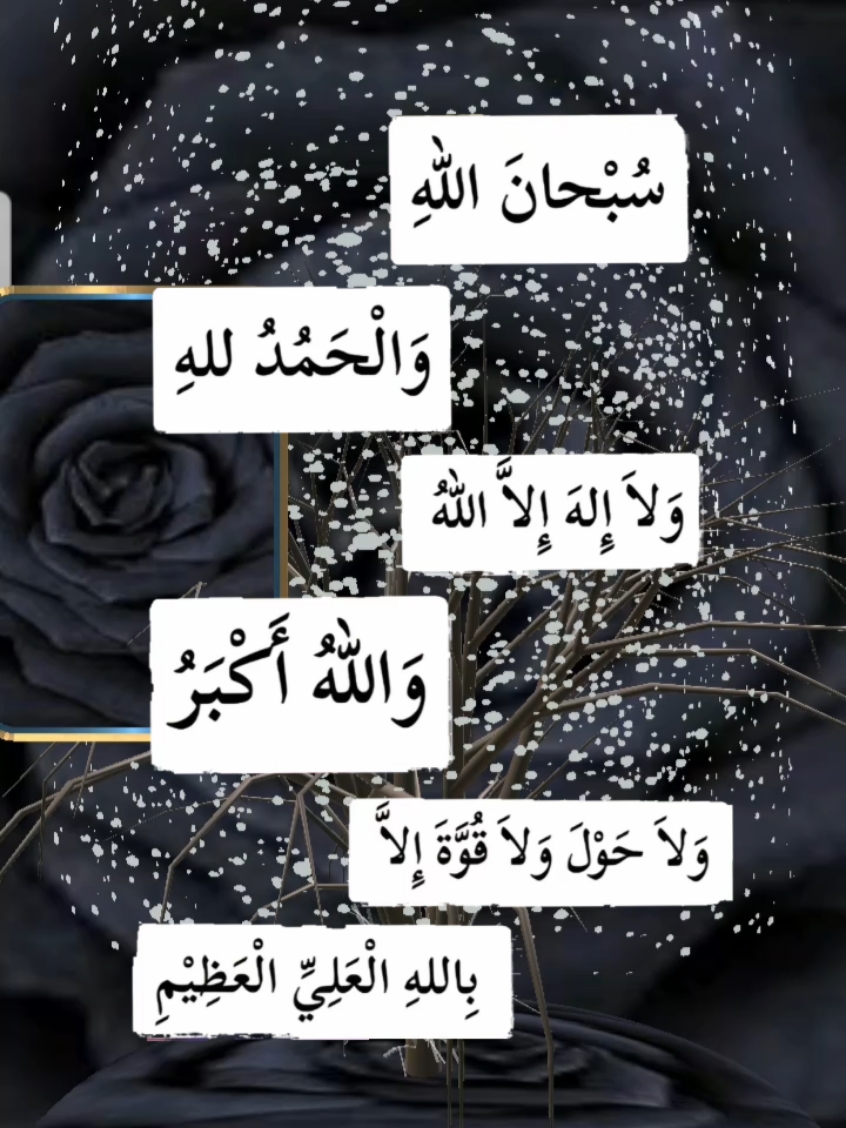 سُبْحانَ اللهِ
وَالْحَمُدُ للهِ
وَلاَ إِلهَ إِلاَّ اللهُ
وَاللهُ أَكْبَرُ
وَلاَ حَوْلَ وَلاَ قُوَّةَ إِلاَّ
بِاللهِ الْعَلِيِّ الْعَظِيْمِ